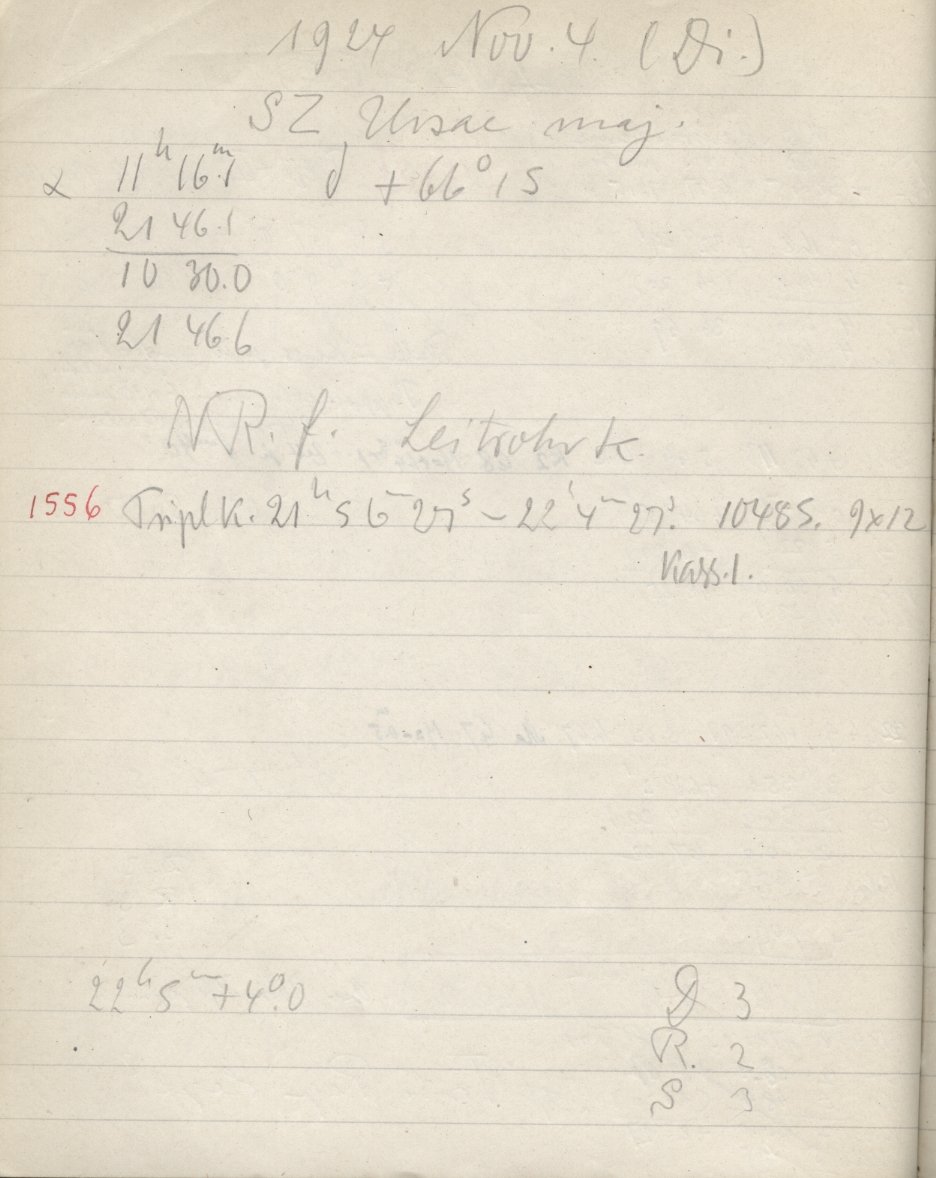 1924 Nov. 4. (Di.)
SZ Ursae maj.
α 11ʰ 16ᵐ.1 δ +66° 15
21 46.1
10 30.0
21 46 6
NR. f. Leitrohr k.
1556 Tripl K. 21ʰ 56ᵐ 27ˢ – 22ʰ 4ᵐ 27ˢ. 10485. 9x12
Kass. 1.
22ʰ 5ᵐ +4°.0 D 3
R. 2
S 3